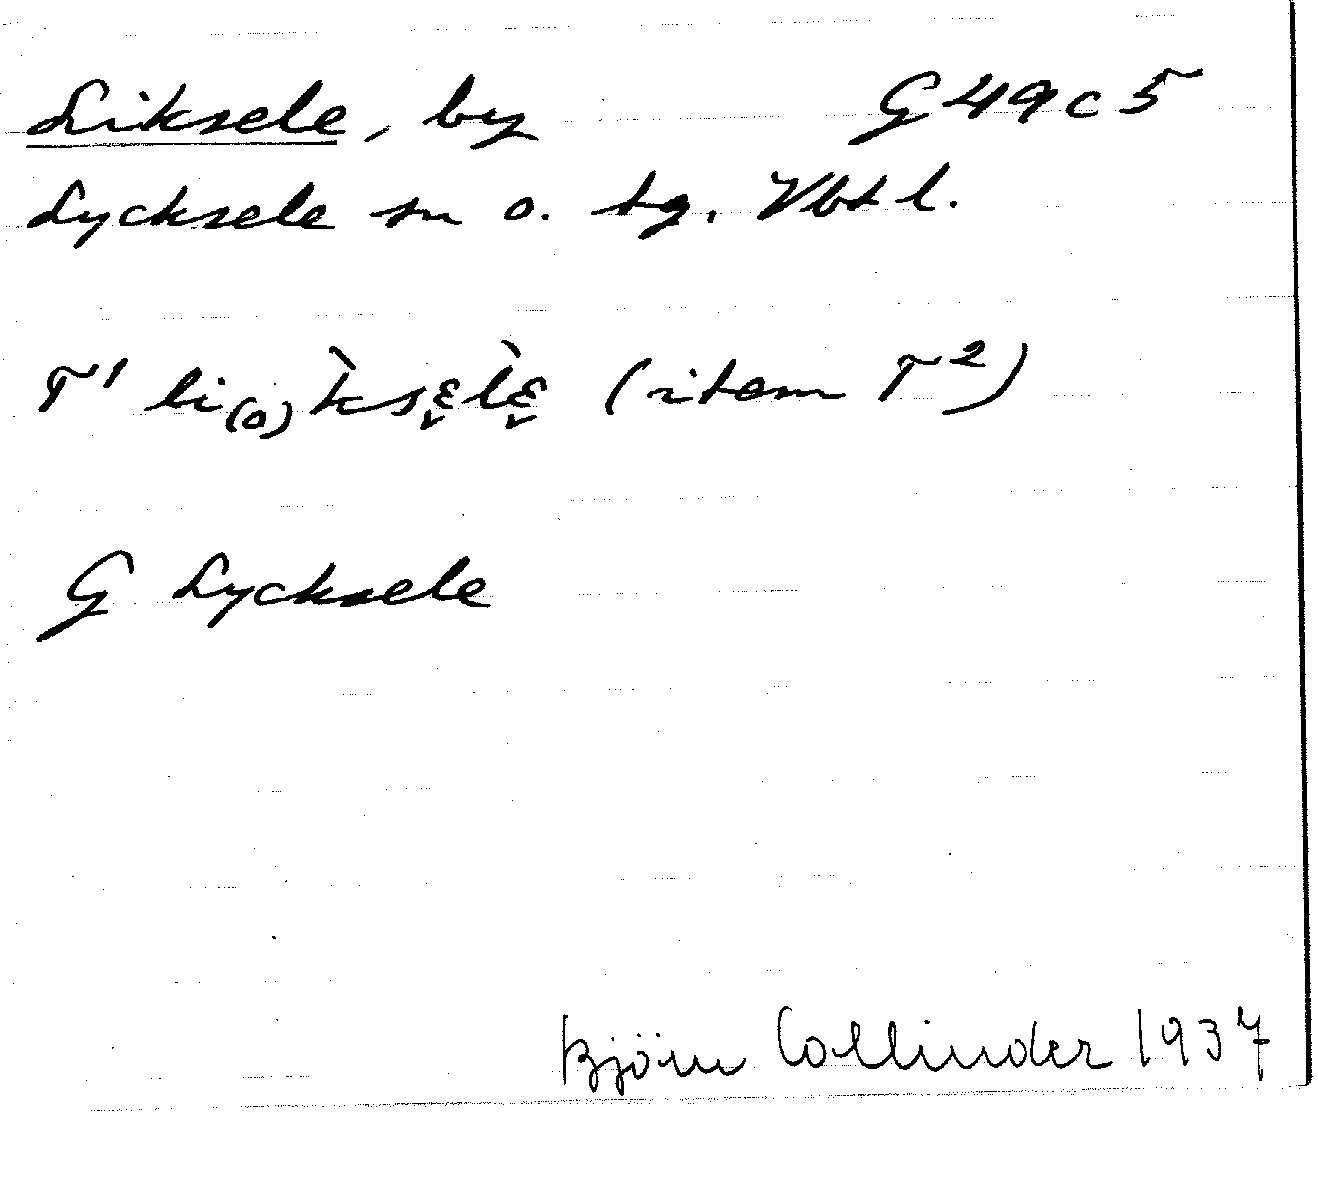 Liksele, by G 49 c 5
Lycksele sn o. tg. Vbtl.
T¹ li₍o₎k̀sɛ̬l̀ɛ̬ (item T²)
G Lycksele
Björn Collinder 1937